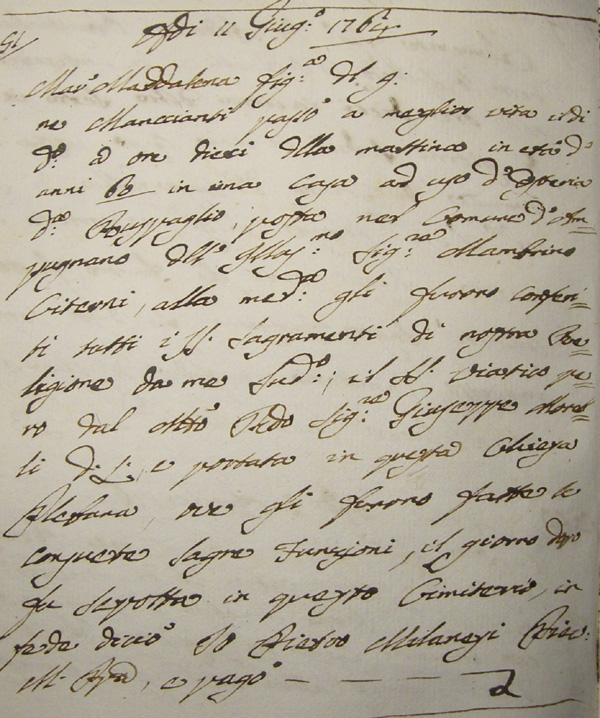 Adi 11 Giug:o 1764
Mar:a Maddalena fig:a del q:
ne Mancianti passò a meglior vita il dì
d:o ad ore dieci della mattina in età d'
anni 62 in una Casa ad uso d'Osteria
d:a posta nel Comune d' Am=
pugnano dell' Illus:mo Sig:re Mambrino
Citerni, alla med:a gli furono conferi=
ti tutti i SS. Sagramenti di nostra Re=
ligione da me Sud:o, il SS. Viatico pe=
ro dal Molto R:do Sig:re Giuseppe Morel=
li e portata in questa Chiesa
Plebana, ove gli furono fatte le
consuete Sagre Funzioni, il giorno dopo
fu Sepolta in questo Cimiterio, in
fede di ciò Io Pietro Milanesi Piev:
M. Ppa, e pagò